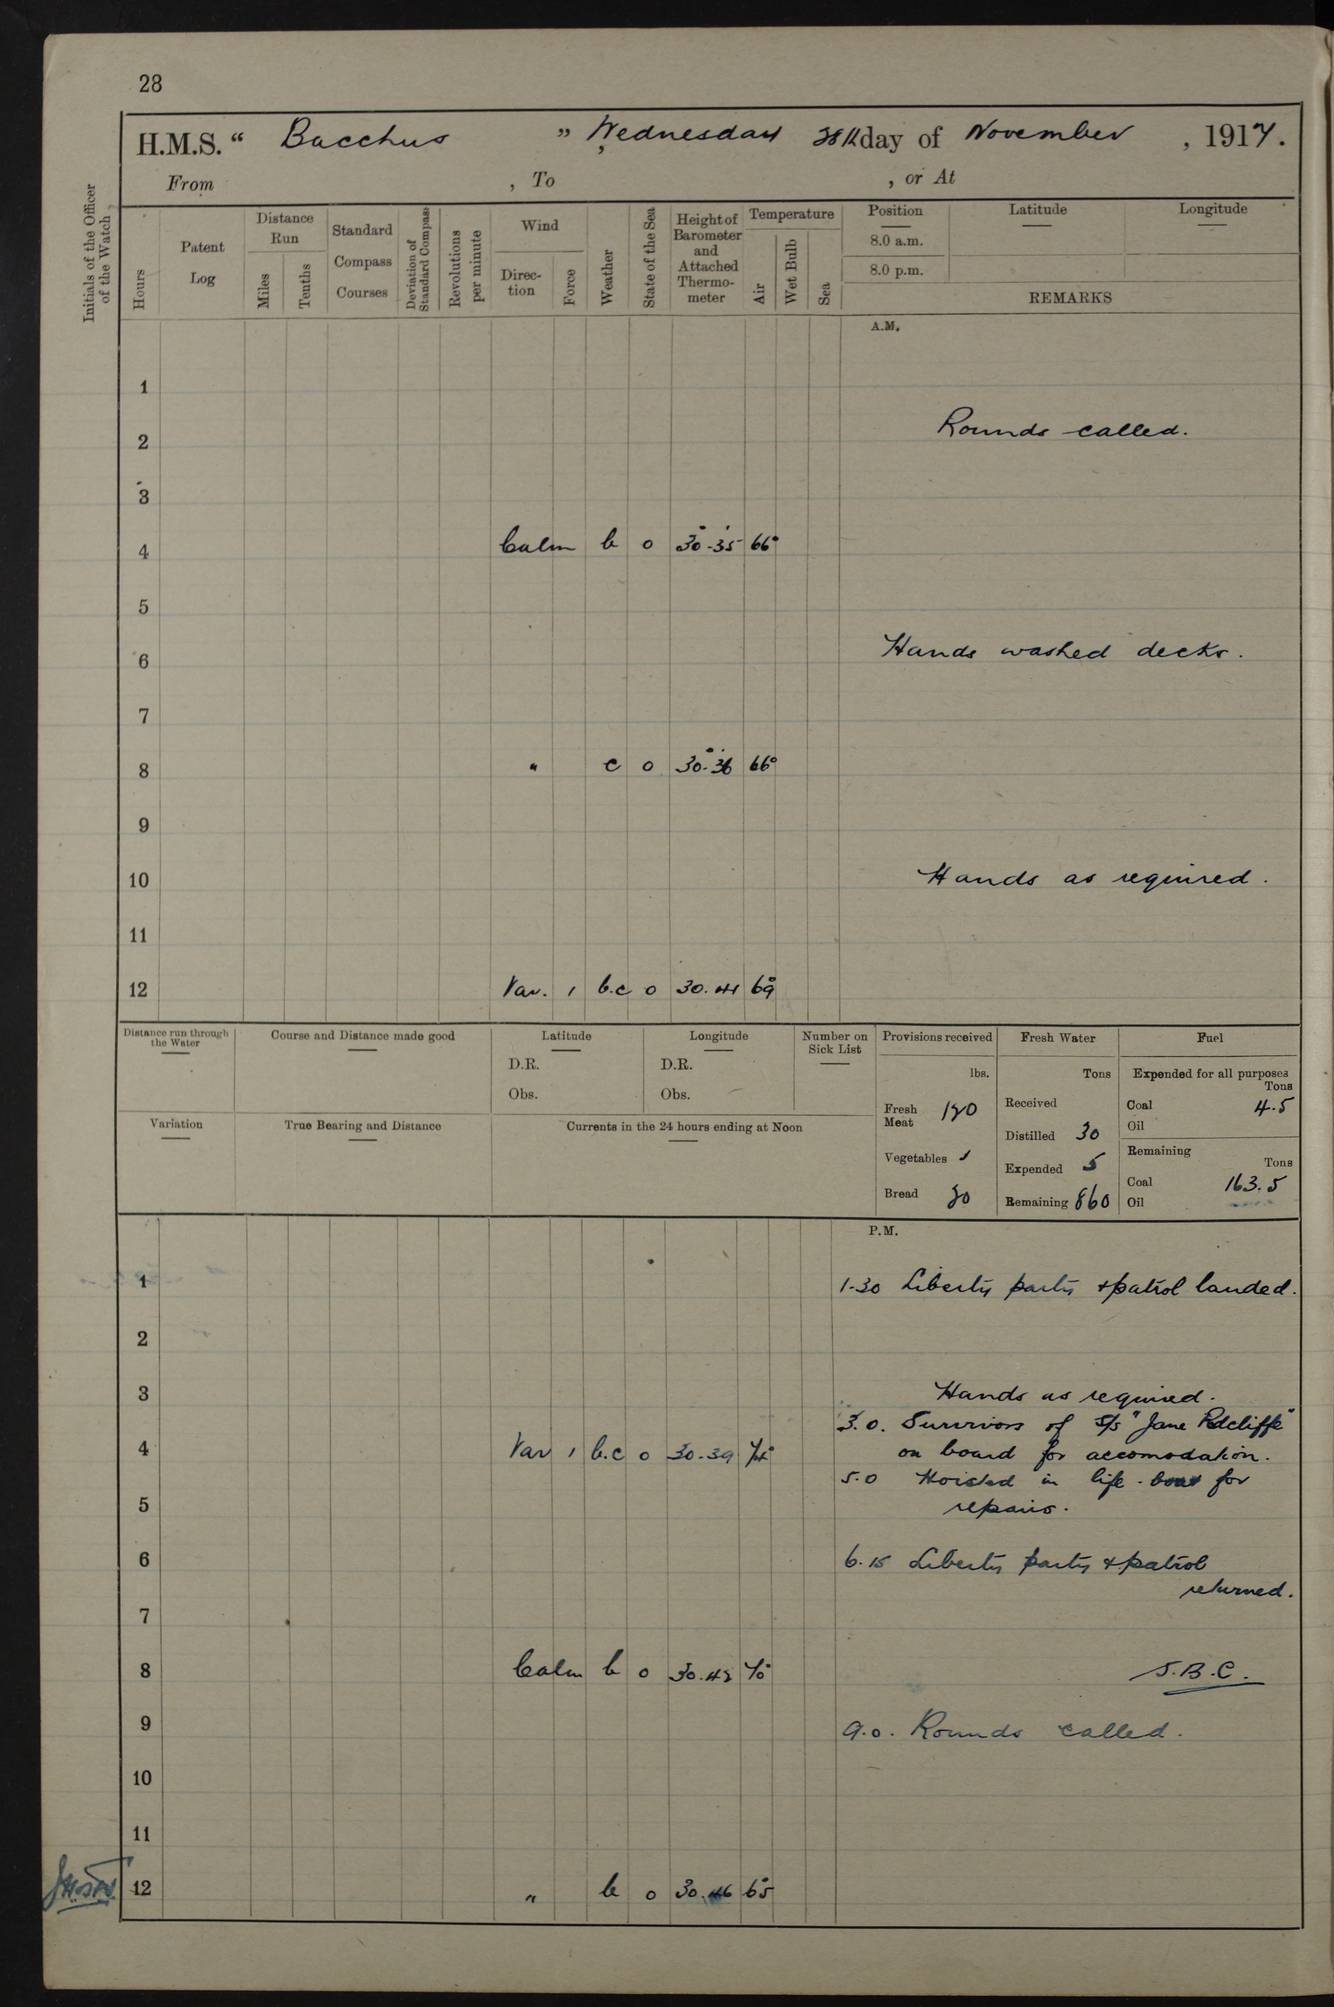 28
H.M.S. “ Bacchus ” Wednesday 28th day of November , 1917.
From , To , or At
Initials of the Officer of the Watch
Hours
Patent Log
Distance Run
Miles
Tenths
Standard Compass Courses
Deviation of Standard Compass
Revolutions per minute
Wind
Direction
Force
Weather
State of the Sea
Height of Barometer and Attached Thermometer
Temperature
Air
Wet Bulb
Sea
Position Latitude Longitude
8.0 a.m.
8.0 p.m.
REMARKS
A.M.
1
2 Rounds called.
3
4 Calm b o 30.35 66°
5
6 Hands washed decks.
7
8 " c o 30.36 66°
9
10 Hands as required.
11
12 Var. 1 b.c o 30.41 69°
Distance run through the Water
Course and Distance made good
Latitude
D.R.
Obs.
Longitude
D.R.
Obs.
Number on Sick List
Provisions received
lbs.
Fresh Meat 120
Vegetables
Bread 80
Fresh Water
Tons
Received
Distilled 30
Expended 5
Remaining 860
Fuel
Expended for all purposes
Tons
Coal 4.5
Oil
Remaining
Tons
Coal 163.5
Oil
Variation
True Bearing and Distance
Currents in the 24 hours ending at Noon
P.M.
1 1-30 Liberty party & patrol landed.
2
3 Hands as required.
3.0. Survivors of S/S "Jane Radcliffe"
4 Var 1 b.c o 30.39 74° on board for accomodation.
5.0 Hoisted in life-boat for
5 repairs.
6 6.15 Liberty party & patrol
returned.
7
8 Calm b o 30.42 70° S.B.C.
9 9.0. Rounds called.
10
11
12 " b o 30.46 65°